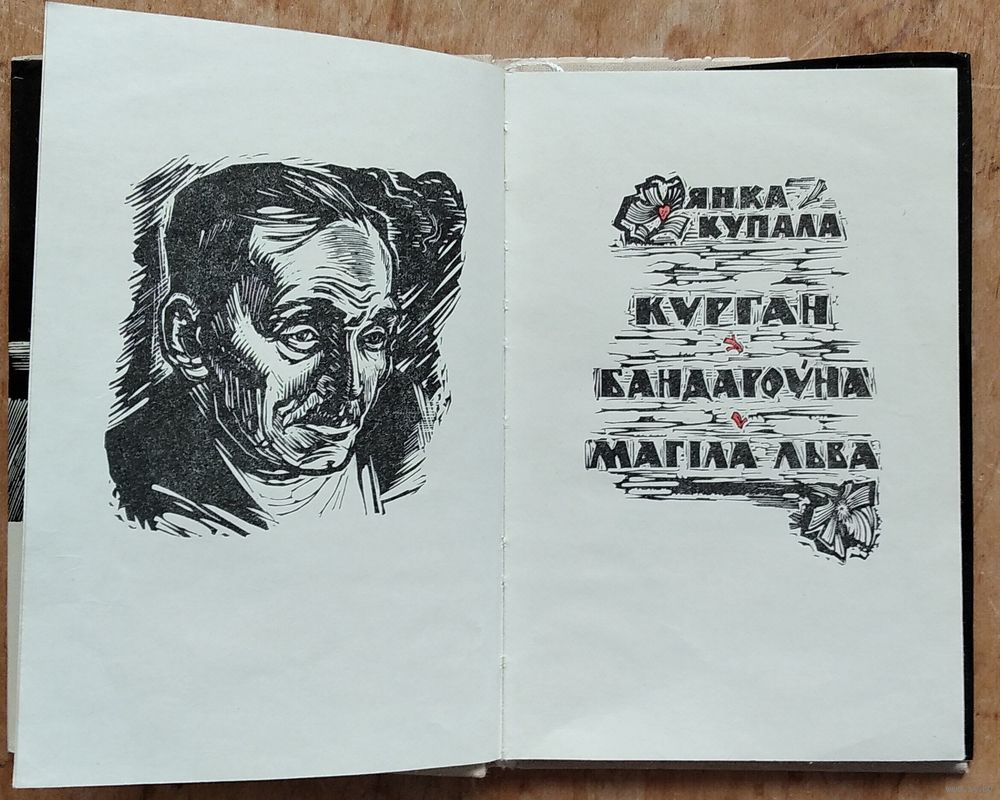 ЯНКА
КУПАЛА
КУРГАН
БАНДАРОЎНА
МАГІЛА ЛЬВА